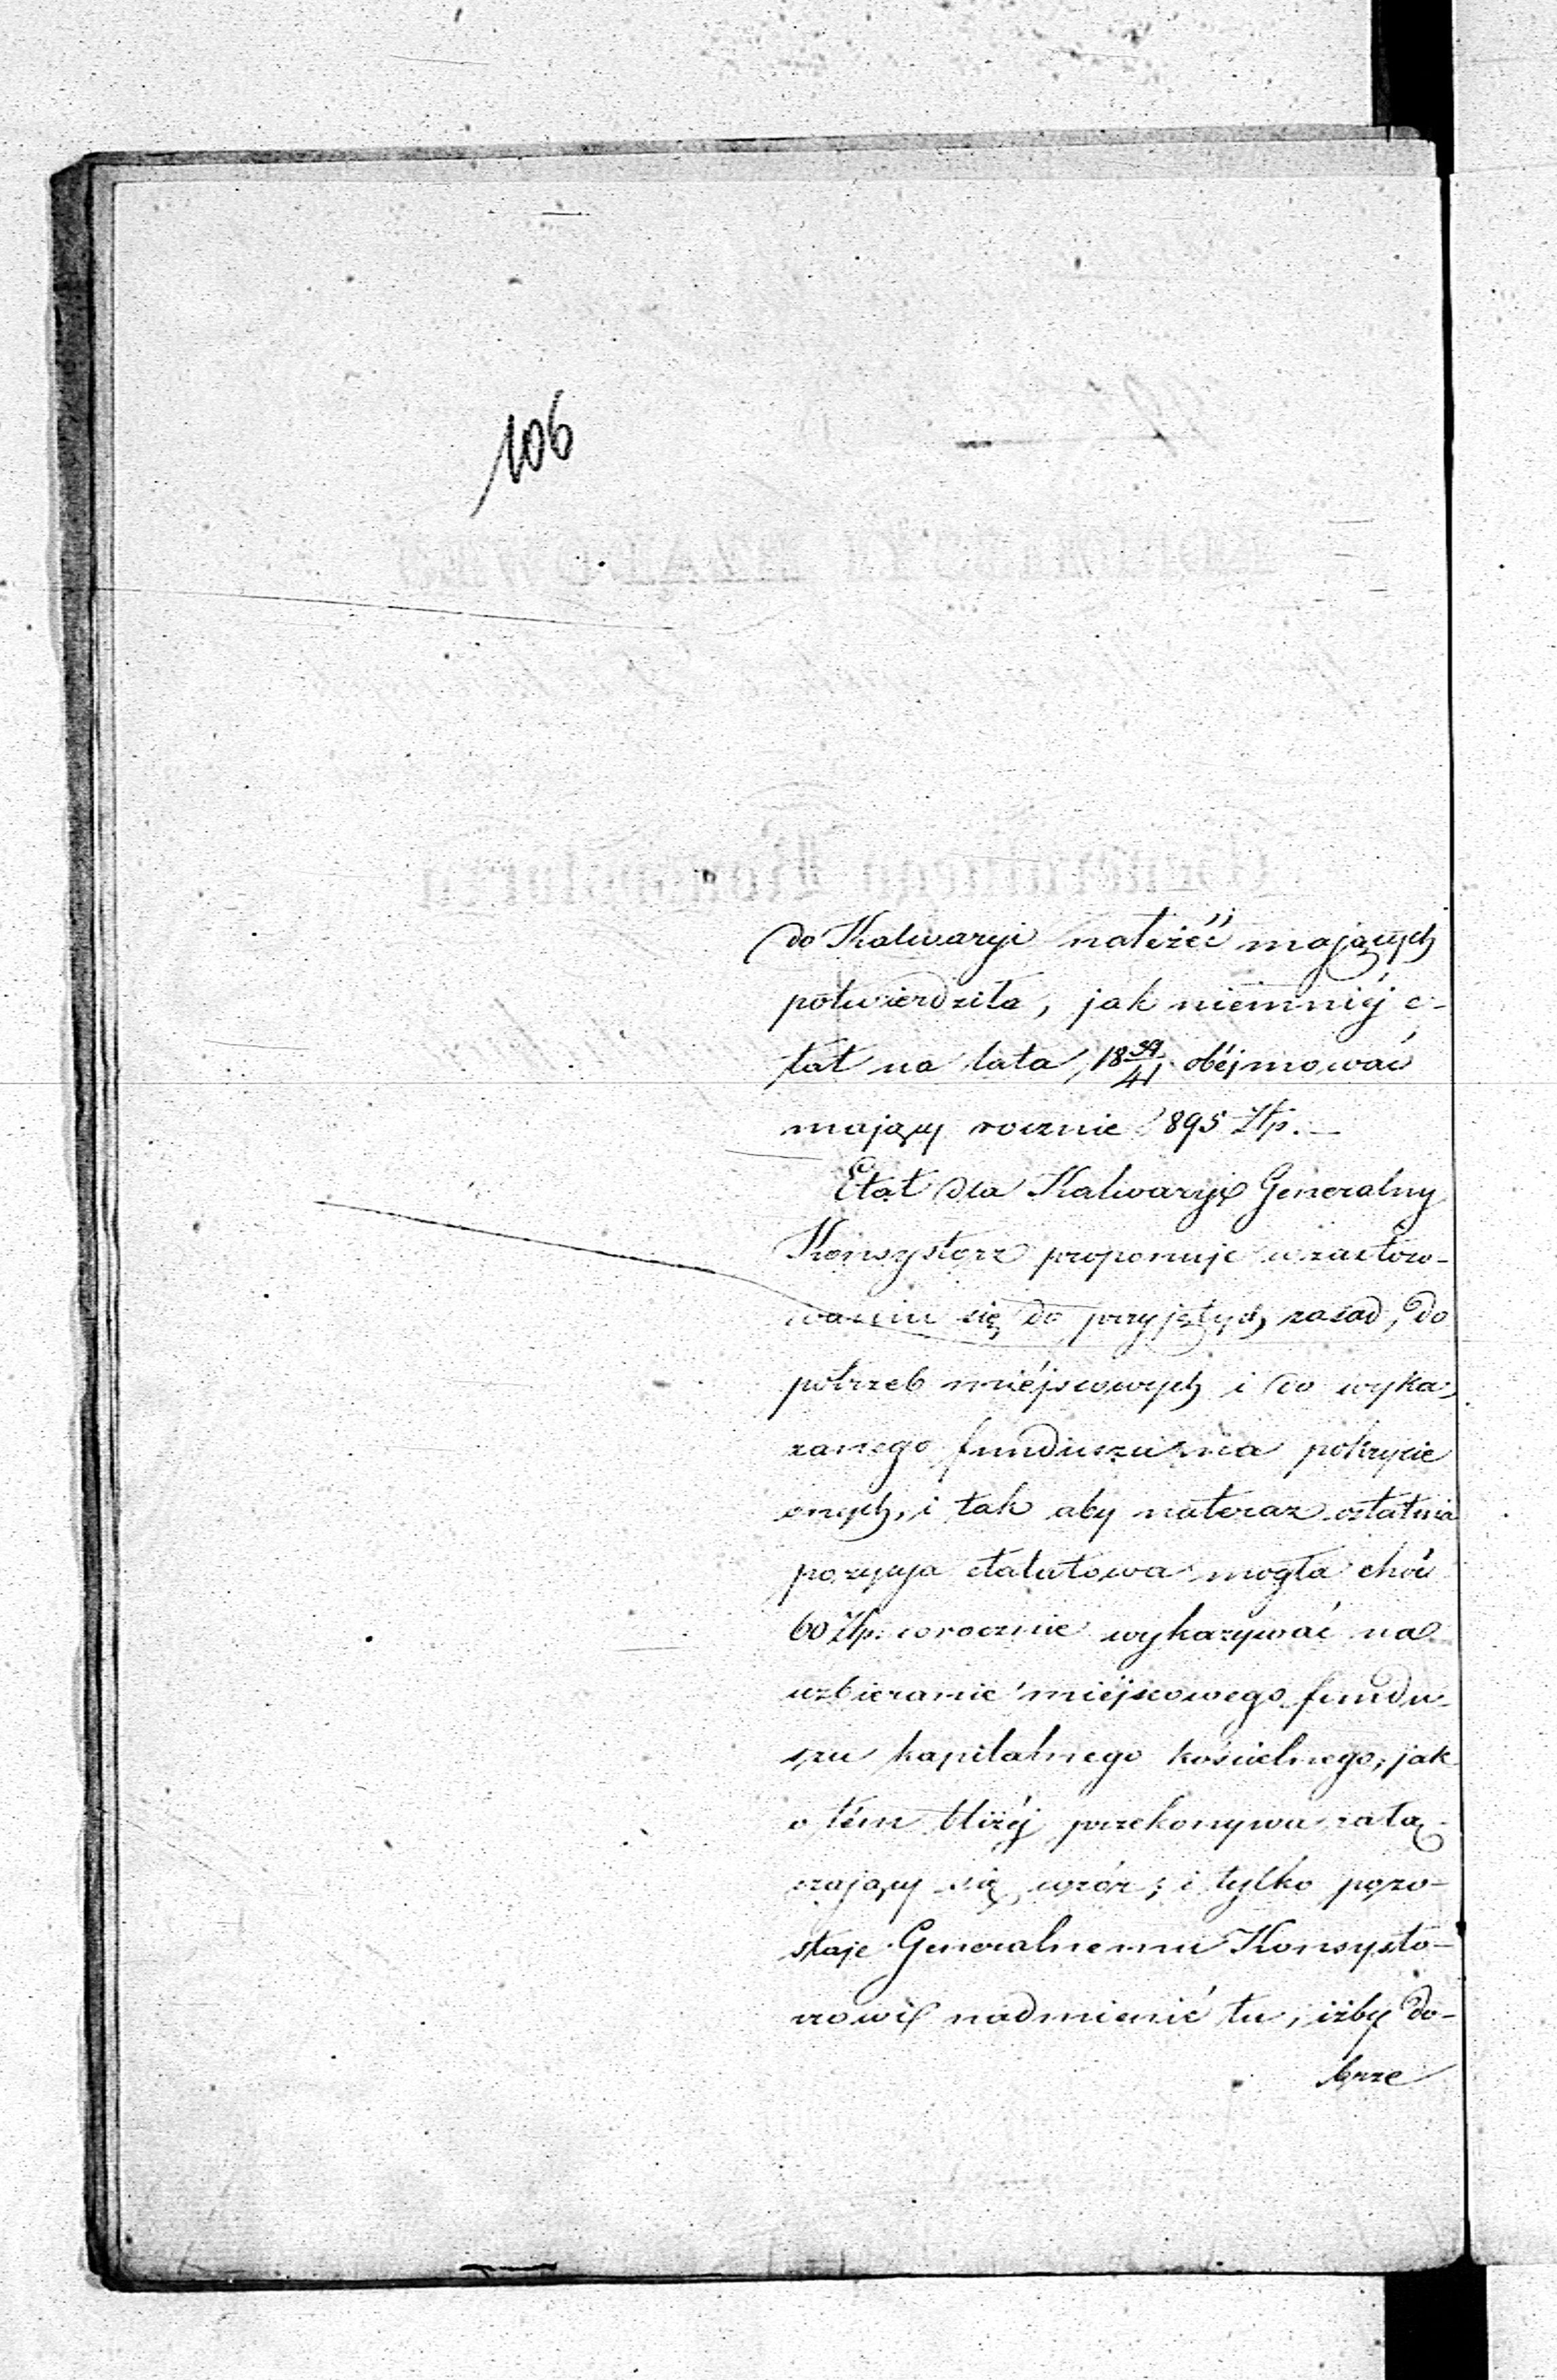 106
do Kalwaryi należéć mających
potwierdziła, jak niemniéj e-
tat na lata 18 39/41 obéjmować
mający rocznie 895 Złp.—
Etat dla Kalwaryi Generalny
Konsystorz proponuje w zastoso-
waniu się do przyjętych zasad, do
potrzeb miéjscowych i do wyka-
zanego funduszu na pokrycie
onych, i tak aby nateraz ostatnia
pozycyja etatowa mogła choć
60 Złp. corocznie wykazywać na
uzbieranie miéjscowego fundu-
szu kapitalnego kościelnego, jak
o tém bliżéj przekonywa załą-
czający się wzór; i tylko pozo-
staje Generalnemu Konsysto-
rowi nadmienić tu, iżby do-
brze